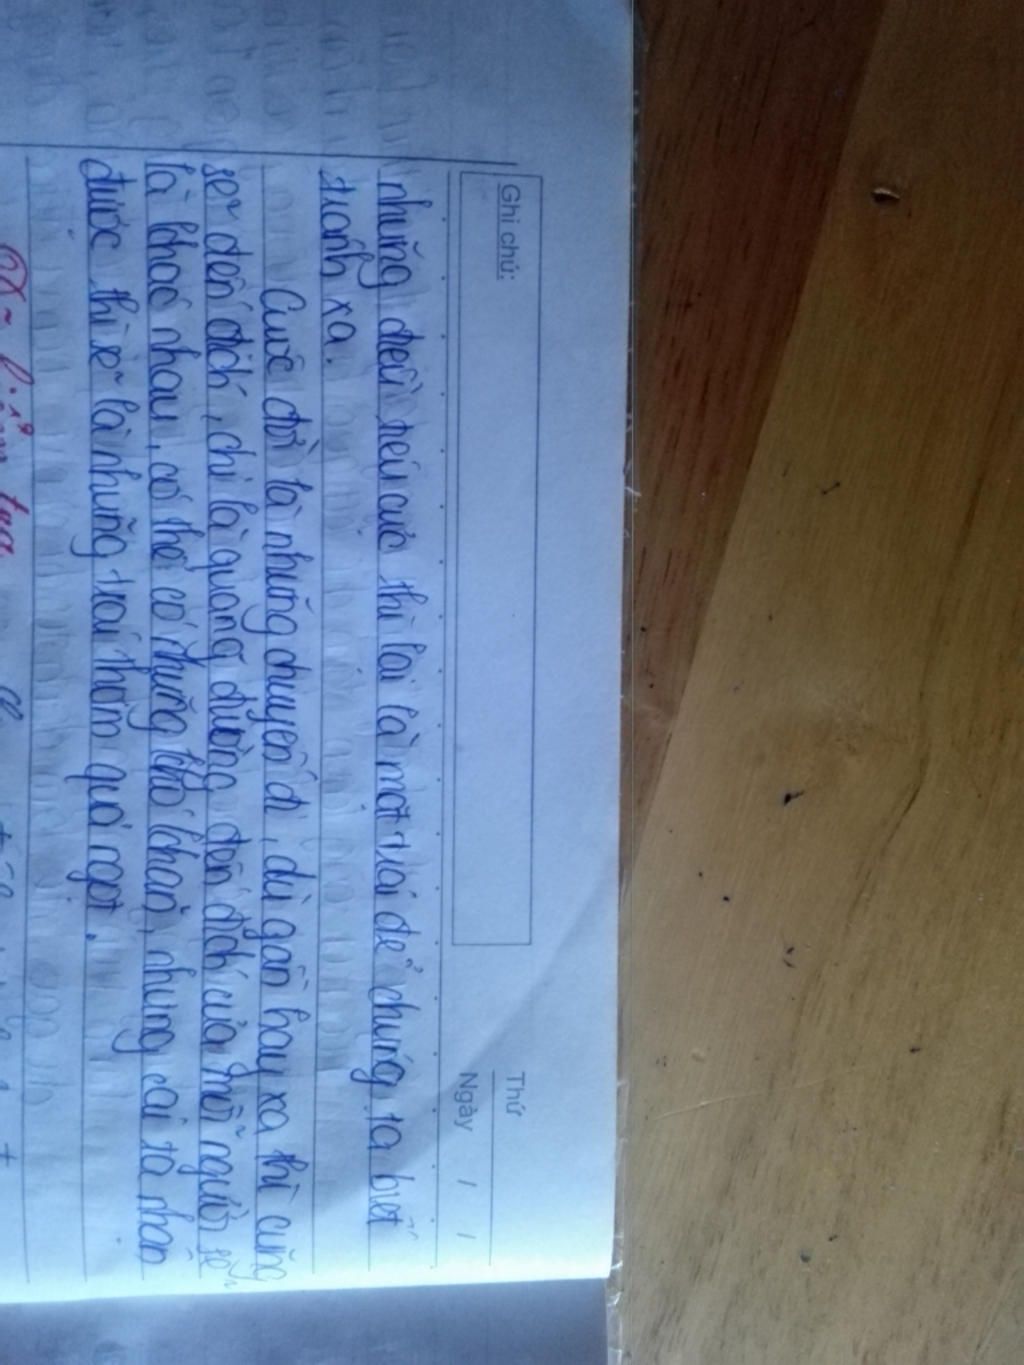 Ghi chú:
Thứ
Ngày / /
những điều tiêu cực thì lại là một trái để chúng ta biết
tránh xa.
Cuộc đời là những chuyến đi, dù gần hay xa thì cũng
sẽ đến đích, chỉ là quãng đường đến đích của mỗi người sẽ
là khác nhau, có thể có những khó khăn, nhưng cái ta nhận
được thì sẽ là những trái thơm quả ngọt.